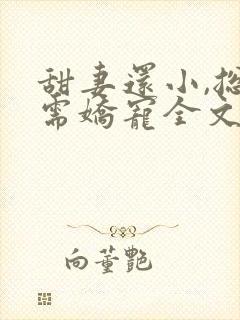 甜妻還小,總
需嬌寵全文
向董艷